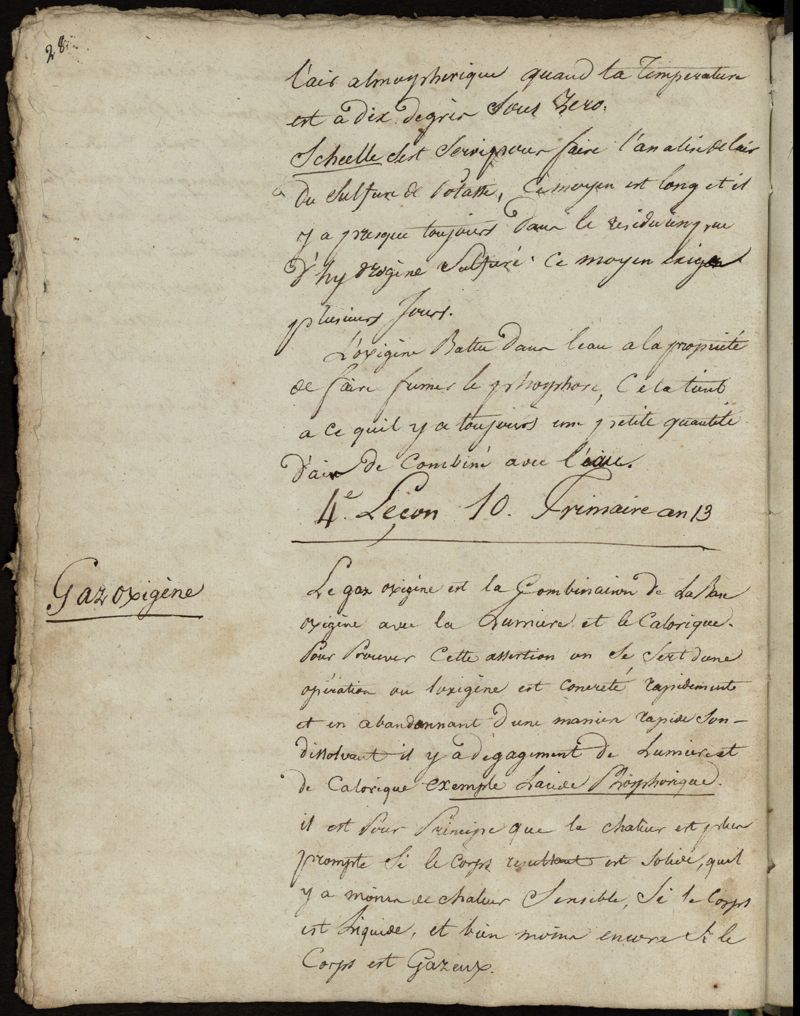 28
l'air atmospherique quand la Temperature
est a dix degrés Sous Zero.
Scheelle s'est Servi pour faire l'analise de l'air
du Sulfure de Potasse, Ce moyen est long et il
y a presque toujours dans le residu un peu
d'hydrogène Sulfuré. Ce moyen exige
plusieurs Jours.
L'oxigène Battu dans l'eau a la propriété
de faire fumer le phosphore, Cela tient
a ce quil y a toujours une petite quantité
d'air de Combiné avec l'eau.
4e. Leçon 10. Frimaire an 13
Gaz oxigène
Le gaz oxigène est la Combinaison de La Base
oxigène avec la Lumiere et le Calorique.
Pour Prouver Cette assertion on Se Sert d'une
opération ou l'oxigène est concreté rapidement
et en abandonnant d'une maniere rapide Son
dissolvant il y a dégagement de Lumiere et
de Calorique exemple L'acide Phosphorique.
il est Pour Principe que la chaleur est plus
prompte Si le Corps resultant est Solide, quil
y a moins de chaleur Sensible, Si le Corps
est Liquide, et bien moins encore Si le
Corps est Gazeux.